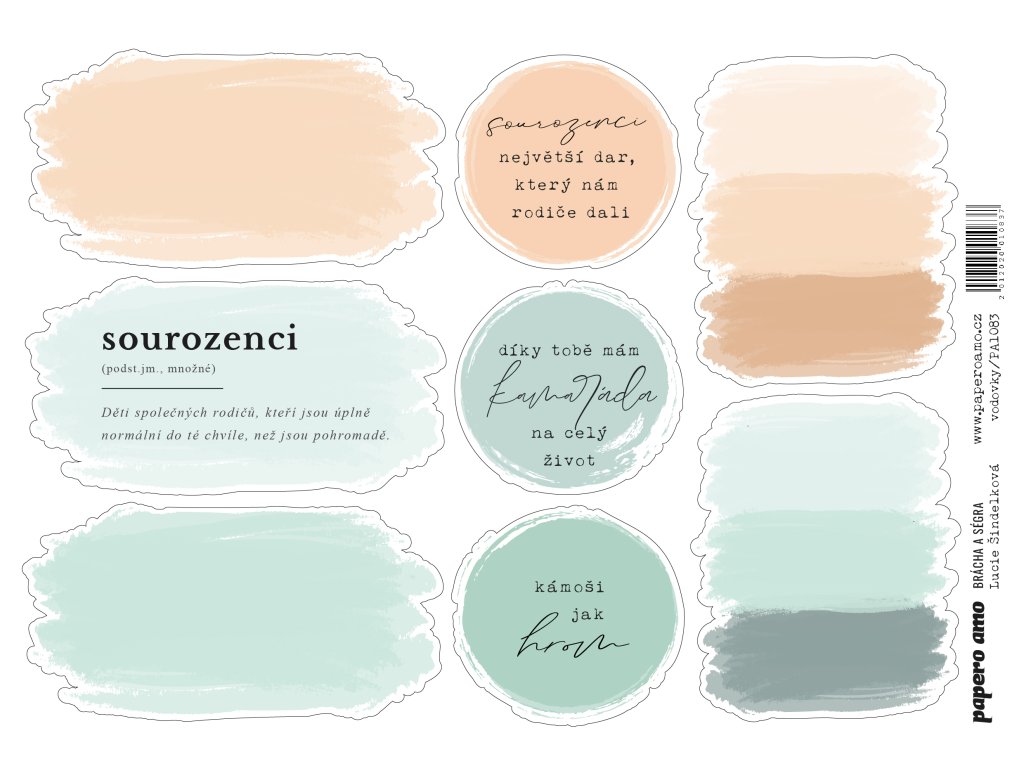 sourozenci
největší dar,
který nám
rodiče dali
sourozenci
(podst.jm., množné)
Děti společných rodičů, kteří jsou úplně
normální do té chvíle, než jsou pohromadě.
díky tobě mám
kamaráda
na celý
život
kámoši
jak
hrom
papero amo
BRÁCHA A SÉGRA
Lucie Šindelková
www.paperoamo.cz
vodovky/PA1083
2012020010837